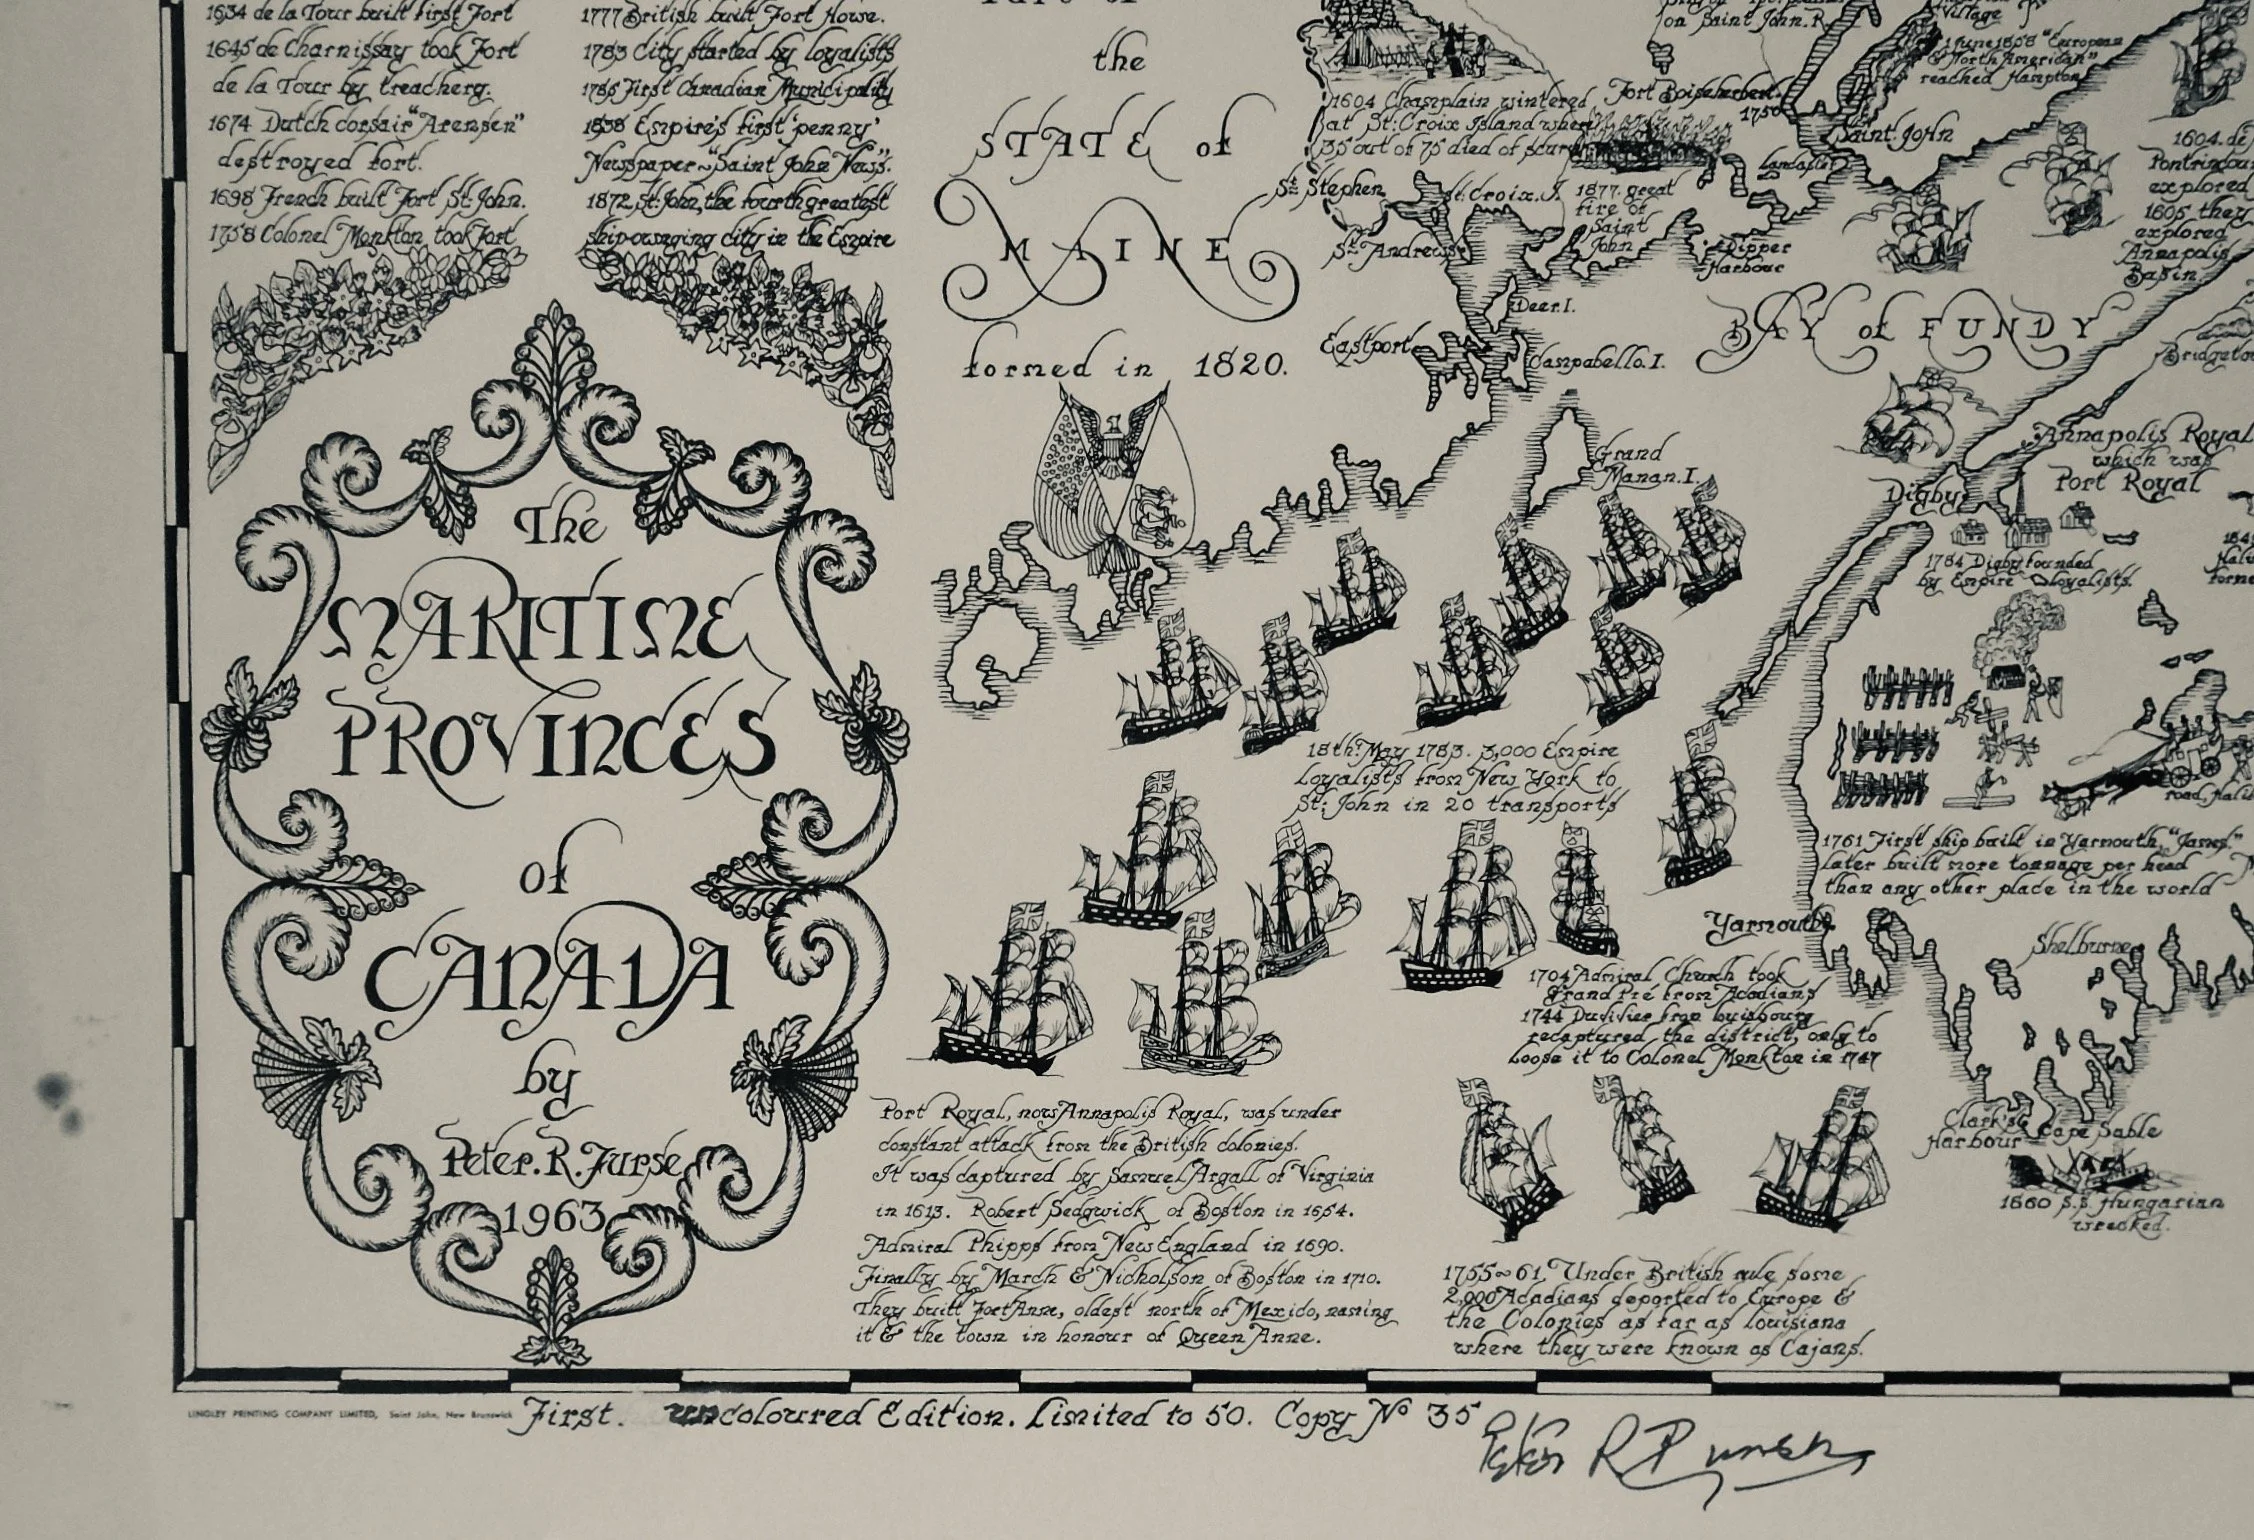 1634 de la Tour built First Fort
1645 de Charnissay took Fort
de la Tour by treachery.
1674 Dutch corsair "Arensen"
destroyed fort.
1698 French built Fort St: John.
1758 Colonel Monkton took Fort
1777 British built Fort Howe.
1783 City started by loyalists
1785 First Canadian Municipality
1838 Empire's first 'penny'
Newspaper~"Saint John News".
1872, St: John, the fourth greatest
ship-owning city in the Empire
The
MARITIME
PROVINCES
of
CANADA
by
Peter. R. Furse
1963
the
STATE of
MAINE
formed in 1820.
on Saint John. R.
Village
1 June 1858 "European
& North American"
reached Hampton
1604 Champlain wintered
at St: Croix Island where
35 out of 75 died of scurvy
Fort Boiseherbert.
1750
Saint. John
Lancaster
St: Stephen
St: Croix. I.
1877. great
fire of
Saint
John
St: Andrews
Dipper
Harbour
1604. de
explored
1605 they
explored
Annapolis
Basin
Deer. I.
BAY of FUNDY
Eastport
Campabello. I.
Grand
Manan. I.
Annapolis Royal
which was
Port Royal
Digby
1784 Digby founded
by Empire loyalists.
18th: May 1783. 3,000 Empire
Loyalists from New York to
St: John in 20 transports
1761 First ship built in Yarmouth, "James."
later built more tonnage per head
than any other place in the world
Yarmouth
Shelburne
1704 Admiral Church took
Grand Pré from Acadians
1744 Duvivier from Louisbourg
recaptured the district, only to
loose it to Colonel Monkton in 1747
Clark's
Harbour
Cape Sable
1860 S.S. Hungarian
wrecked.
Port Royal, now Annapolis Royal, was under
constant attack from the British colonies.
It was captured by Samuel Argall of Virginia
in 1613. Robert Sedgwick of Boston in 1654.
Admiral Phipps from New England in 1690.
Finally by March & Nicholson of Boston in 1710.
They built Fort Anne, oldest north of Mexico, naming
it & the town in honour of Queen Anne.
1755~61. Under British rule some
2,000 Acadians deported to Europe &
the Colonies as far as Louisiana
where they were known as Cajans.
LINGLEY PRINTING COMPANY LIMITED, Saint John, New Brunswick
First. uncoloured Edition. Limited to 50. Copy No 35